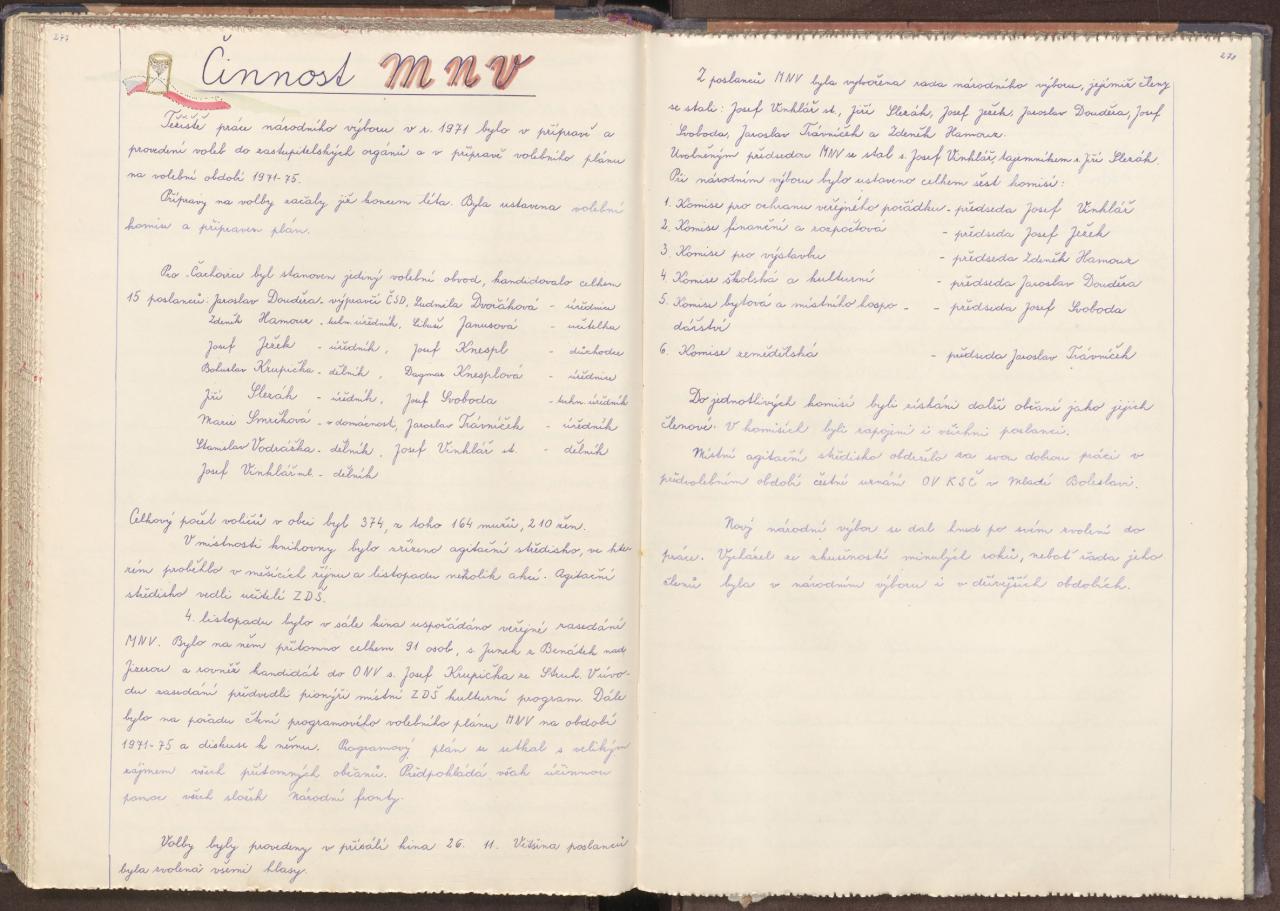 277
Činnost MNV
Těžiště práce národního výboru v r. 1971 bylo v přípravě a
provedení voleb do zastupitelských orgánů a v přípravě volebního plánu
na volební období 1971-75.
Přípravy na volby začaly již koncem léta. Byla ustavena volební
komise a připraven plán.
Pro Čachovice byl stanoven jediný volební obvod, kandidovalo celkem
15 poslanců: Jaroslav Douděra - výpravčí ČSD, Ludmila Dvořáková - úřednice
Zdeněk Hamour - techn. úředník, Libuše Janusová - učitelka
Josef Ježek - úředník, Josef Knespl - důchodce
Bohuslav Krupička - dělník, Dagmar Knesplová - úřednice
Jiří Slezák - úředník, Josef Svoboda - techn. úředník
Marie Smrčková - v domácnosti, Jaroslav Trávníček - úředník
Stanislav Vodrážka - dělník, Josef Vinklář st. - dělník
Josef Vinklář ml. - dělník
Celkový počet voličů v obci byl 374, z toho 164 mužů, 210 žen.
V místnosti knihovny bylo zřízeno agitační středisko, ve kte-
rém proběhlo v měsících říjnu a listopadu několik akcí. Agitační
středisko vedli učitelé ZDŠ.
4. listopadu bylo v sále kina uspořádáno veřejné zasedání
MNV. Bylo na něm přítomno celkem 91 osob, s. Junek z Benátek nad
Jizerou a rovněž kandidát do ONV s. Josef Krupička ze Struh. V úvo-
du zasedání předvedli pionýři místní ZDŠ kulturní program. Dále
bylo na pořadu čtení programového volebního plánu MNV na období
1971-75 a diskuse k němu. Programový plán se setkal s velikým
zájmem všech přítomných občanů. Předpokládá však účinnou
pomoc všech složek Národní fronty.
Volby byly provedeny v přísálí kina 26. 11. Většina poslanců
byla zvolena všemi hlasy.
Z poslanců MNV byla vytvořena rada národního výboru, jejímiž členy
se stali: Josef Vinklář st., Jiří Slezák, Josef Ježek, Jaroslav Douděra, Josef
Svoboda, Jaroslav Trávníček a Zdeněk Hamour.
Uvolněným předsedou MNV se stal s. Josef Vinklář, tajemníkem s. Jiří Slezák.
Při národním výboru bylo ustaveno celkem šest komisí:
1. Komise pro ochranu veřejného pořádku - předseda Josef Vinklář
2. Komise finanční a rozpočtová - předseda Josef Ježek
3. Komise pro výstavbu - předseda Zdeněk Hamour
4. Komise školská a kulturní - předseda Jaroslav Douděra
5. Komise bytová a místního hospo- - předseda Josef Svoboda
dářství
6. Komise zemědělská - předseda Jaroslav Trávníček
Do jednotlivých komisí byli získáni další občané jako jejich
členové. V komisích byli zapojeni i všichni poslanci.
Místní agitační středisko obdrželo za svou dobrou práci v
předvolebním období čestné uznání OV KSČ v Mladé Boleslavi.
Nový národní výbor se dal hned po svém zvolení do
práce. Vycházel ze zkušeností minulých roků, neboť řada jeho
členů byla v národním výboru i v dřívějších obdobích.